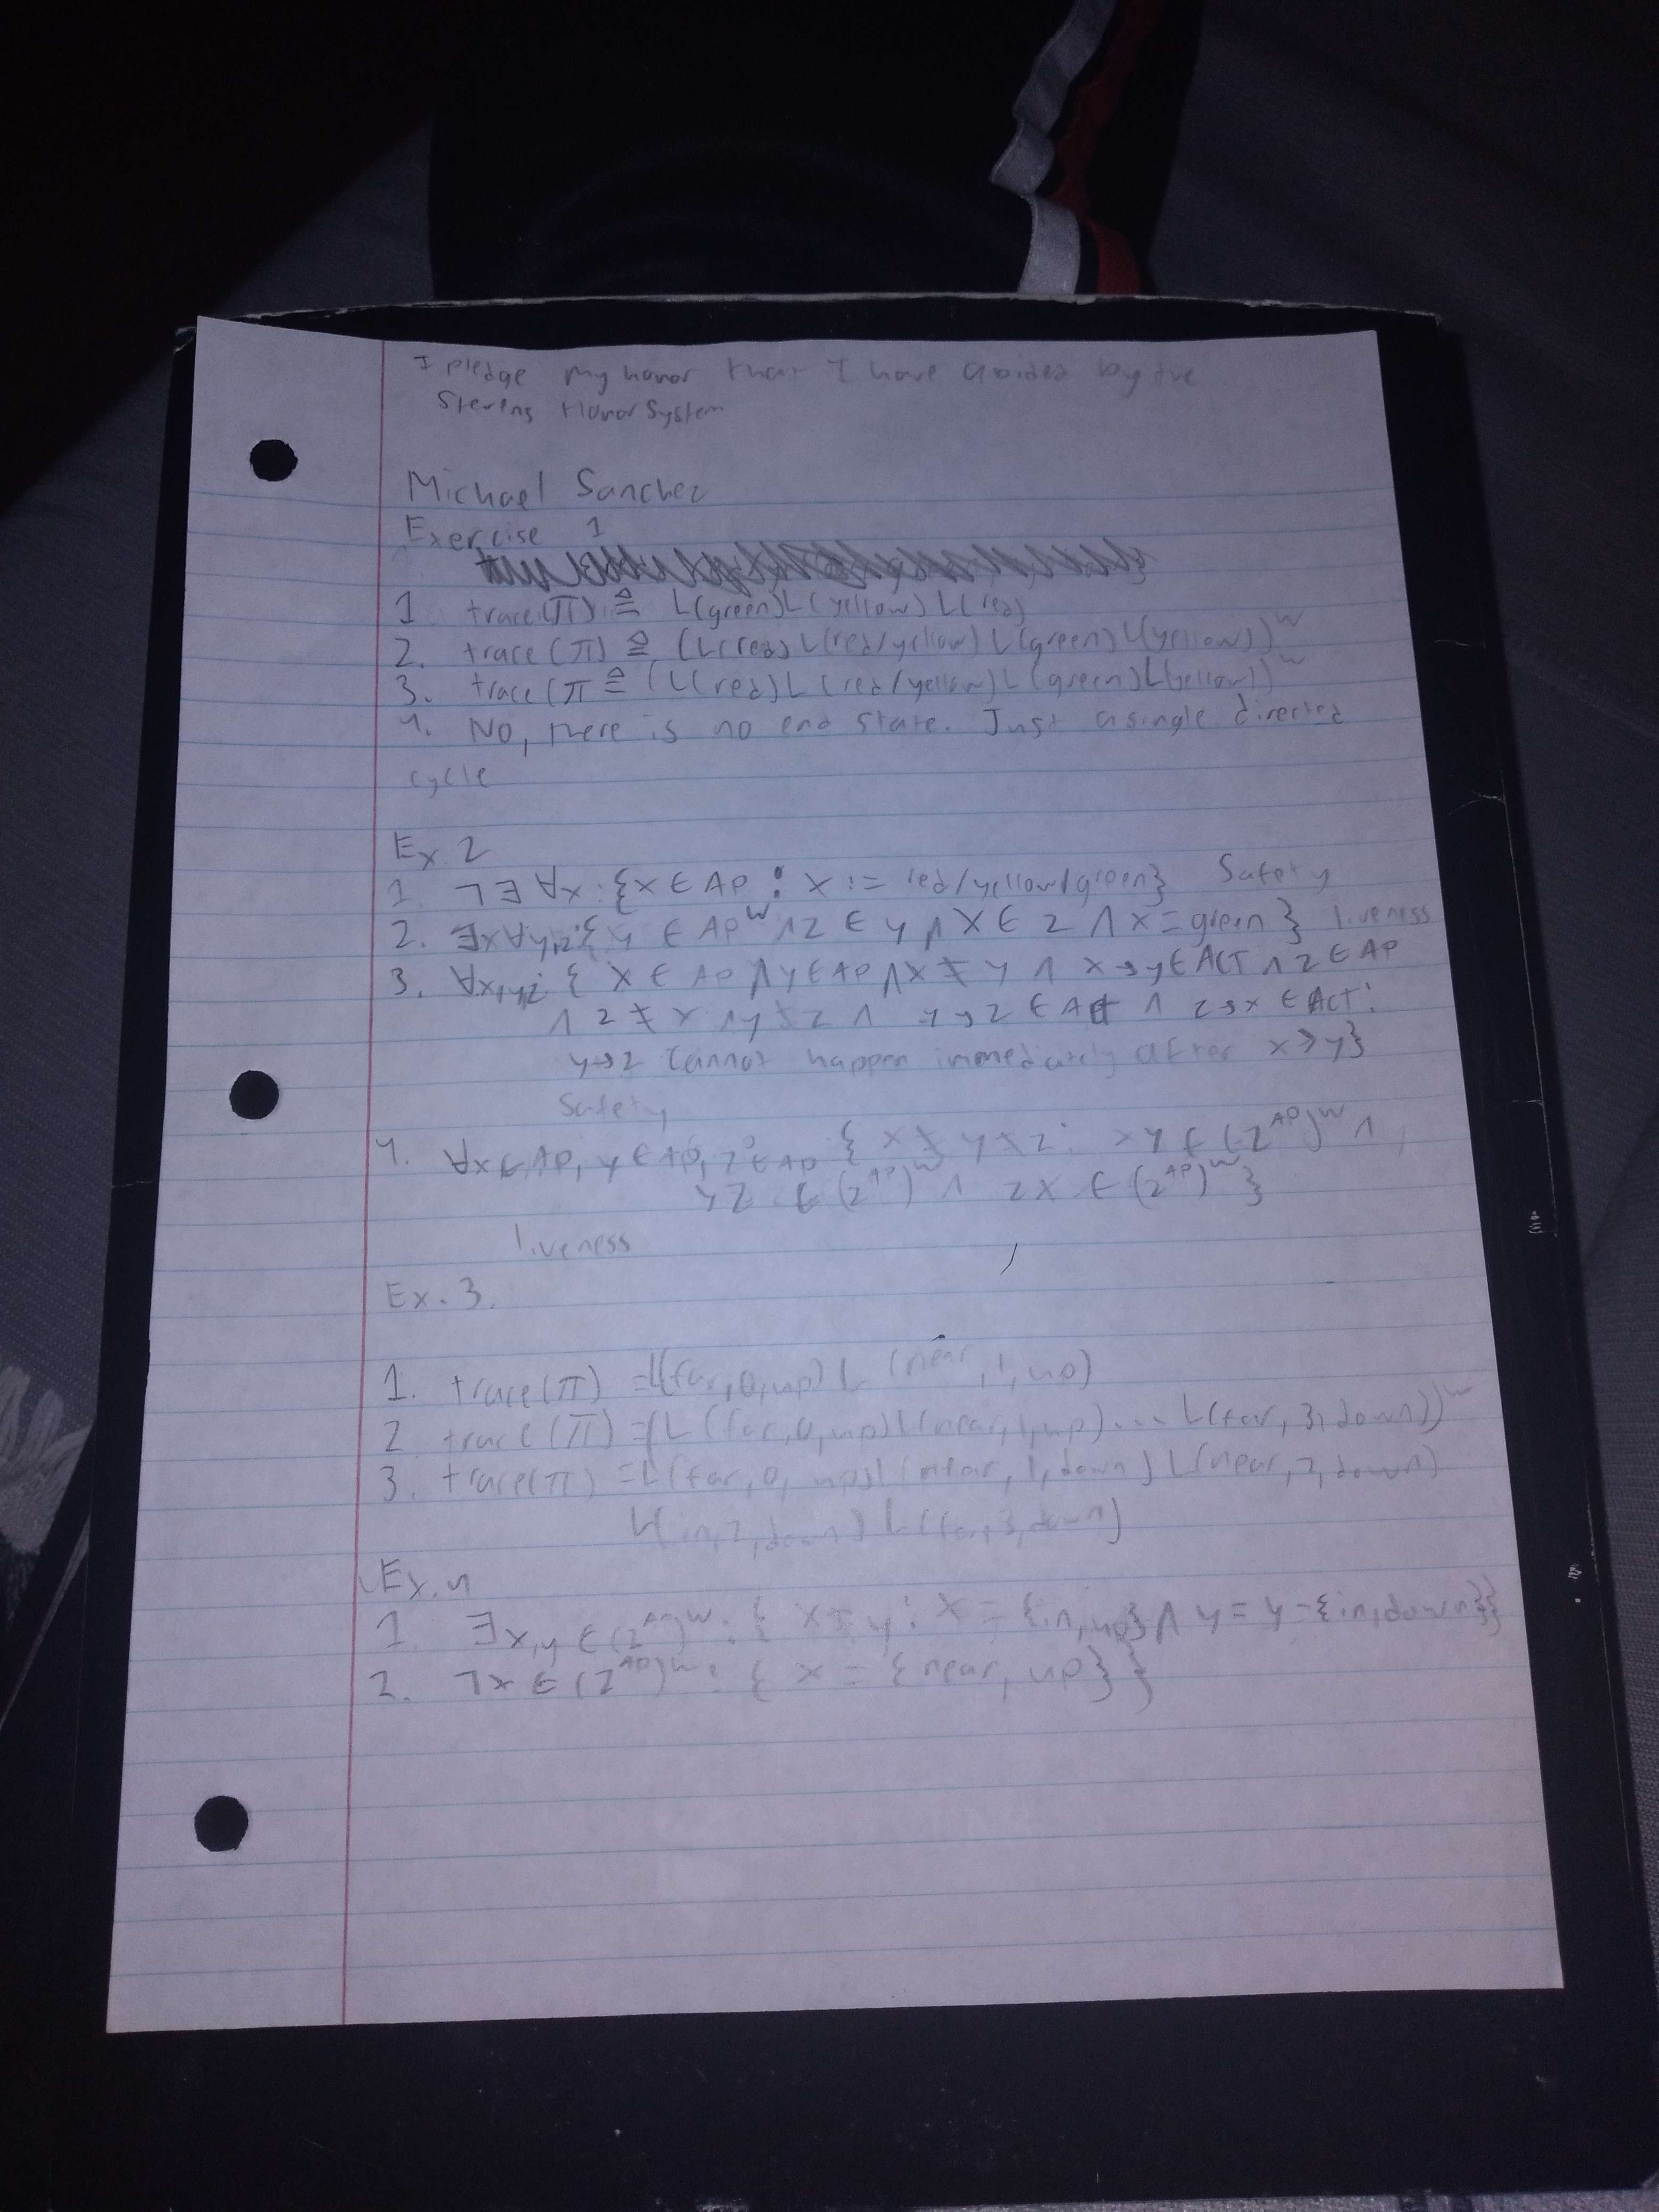 I pledge my honor that I have abided by the
Stevens Honor System
Michael Sanchez
Exercise 1
1 trace(π) ≙ L(green)L(yellow)L(red)
2. trace(π) ≙ (L(red)L(red/yellow)L(green)L(yellow))^w
3. trace(π ≙ (L(red)L(red/yellow)L(green)L(yellow))^w
4. No, there is no end state. Just a single directed
cycle
Ex 2
1. ¬∃∀x: {x∈AP: x := red/yellow/green} Safety
2. ∃x∀y,z: { y ∈ AP^w ∧ z ∈ y ∧ x ∈ z ∧ x = green } liveness
3. ∀x,y,z: { x ∈ AP ∧ y ∈ AP ∧ x ≠ y ∧ x→y ∈ ACT ∧ z ∈ AP
∧ z ≠ x ∧ y ≠ z ∧ y→z ∈ Act ∧ z→x ∈ ACT:
y→z cannot happen immediately after x→y}
Safety
4. ∀x∈AP, y∈AP, z∈AP: { x ≠ y ≠ z: xy ∈ (2^AP)^w ∧
yz ∈ (2^AP)^w ∧ zx ∈ (2^AP)^w }
liveness
Ex. 3.
1. trace(π) = L(far,0,up) L(near,1,up)
2 trace(π) = (L(far,0,up)L(near,1,up)... L(far,3,down))^w
3. trace(π) = L(far,0,up)L(near,1,down) L(near,2,down)
L(in,2,down) L(far,3,down)
Ex. 4
1. ∃x,y ∈ (2^AP)^w: { x ≠ y: x = {in,up} ∧ y = y = {in,down}}
2. ¬x ∈ (2^AP)^w: { x = {near, up} }